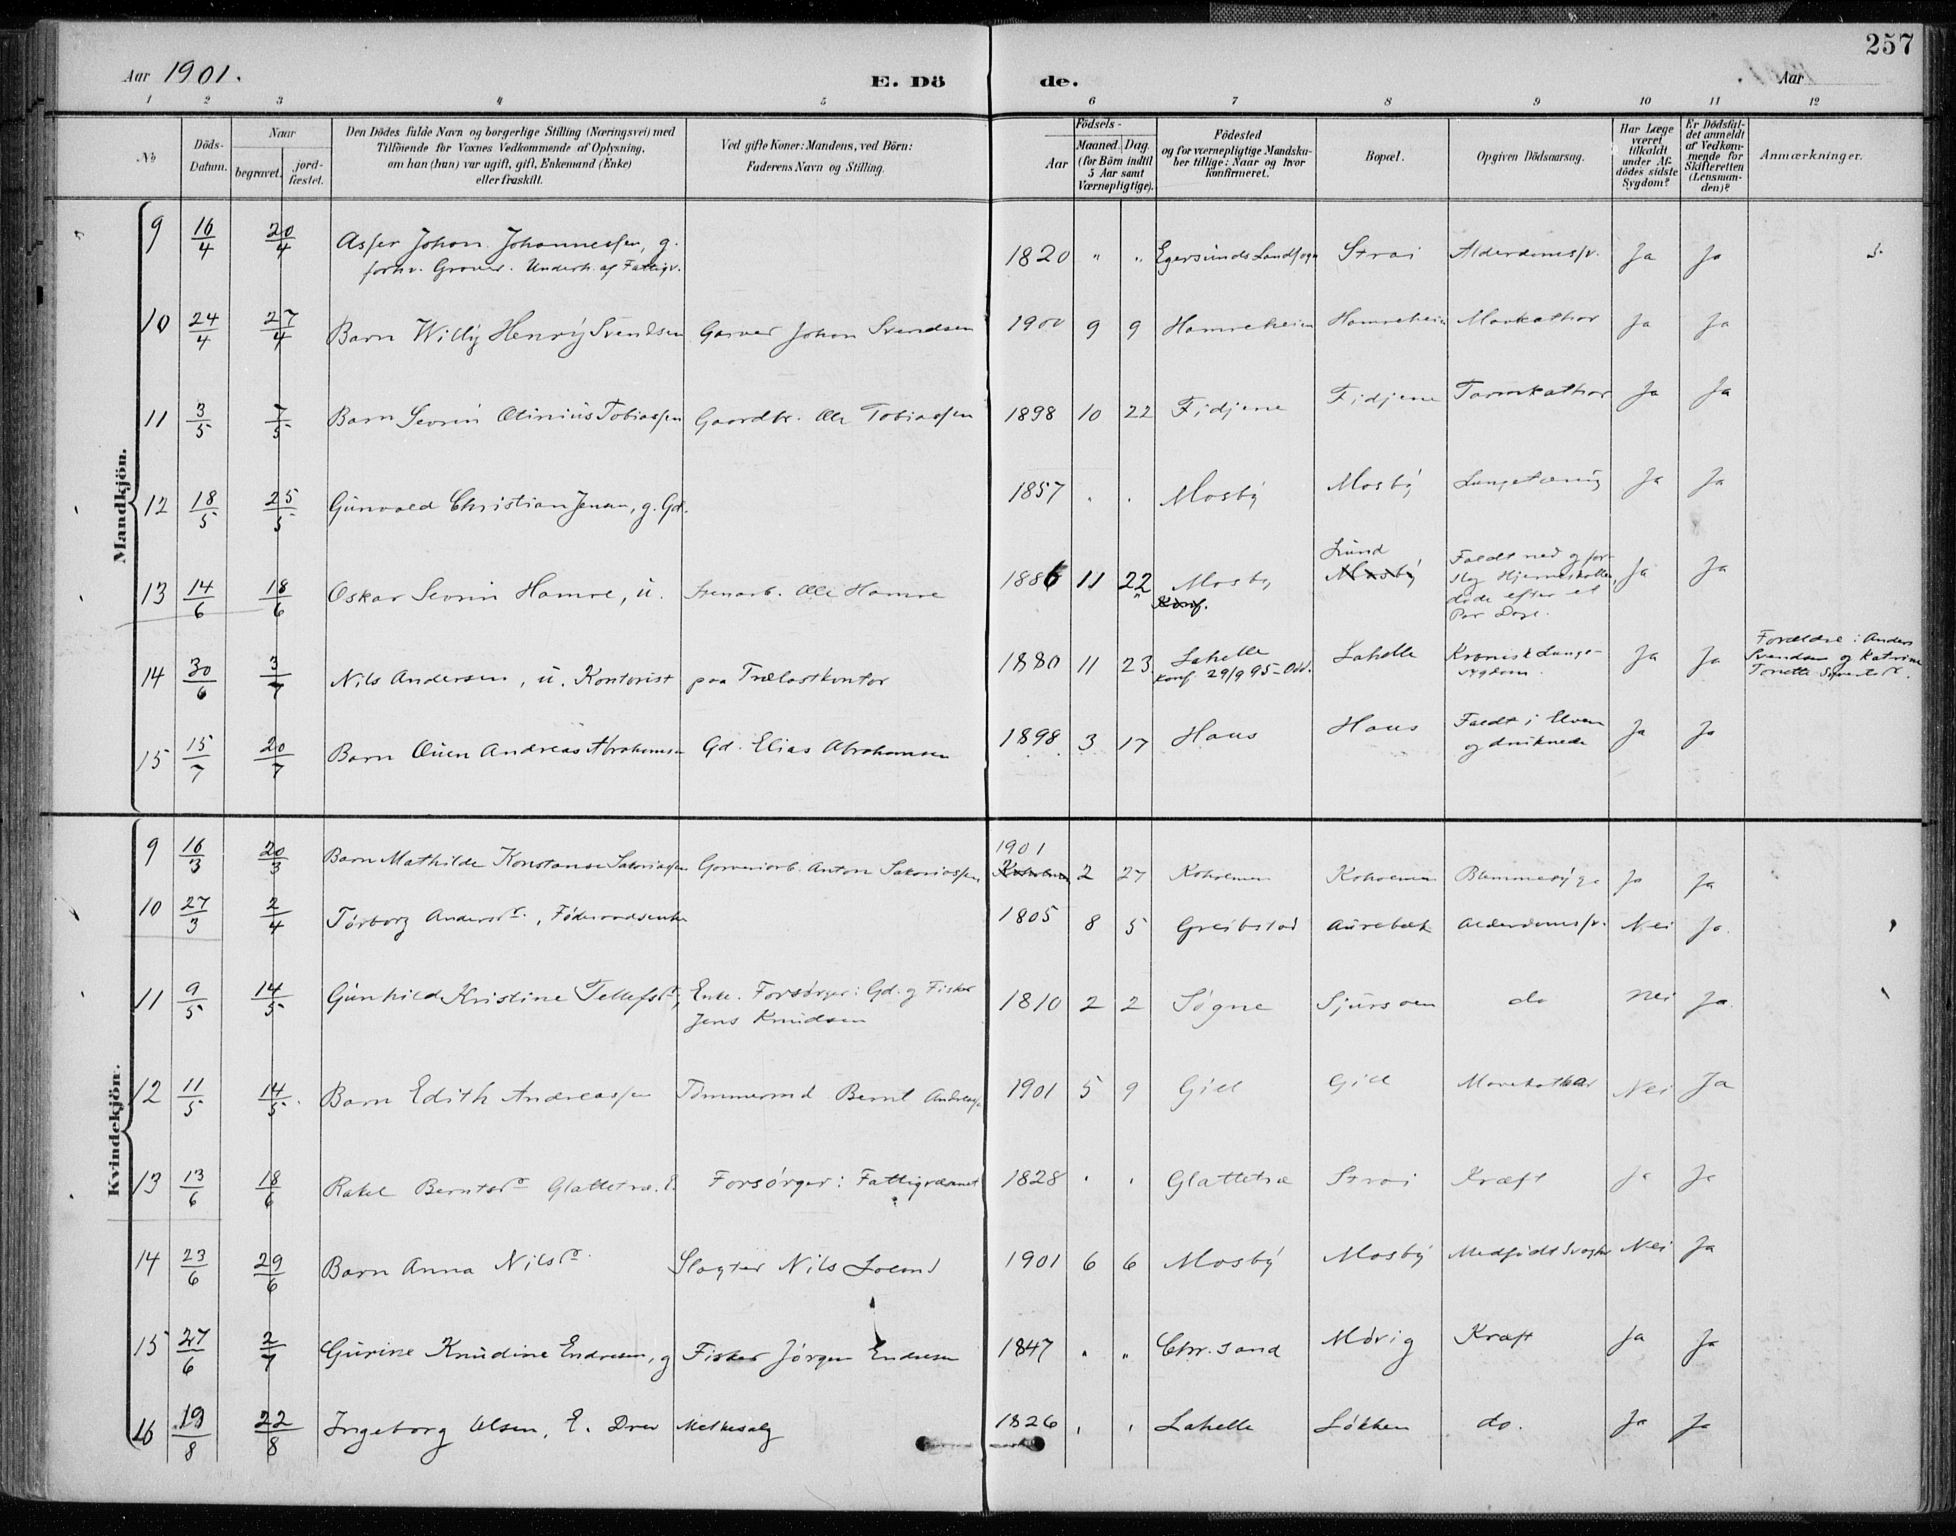 257
Aar 1901. E. Dö de. Aar
1 2 3 4 5 6 7 8 9 10 11 12
№ Döds-Datum. Naar begravet. jord-fæstet.
Den Dödes fulde Navn og borgerlige Stilling (Næringsvei) med
Tilföiende for Voxnes Vedkommende af Oplysning,
om han (hun) var ugift, gift, Enkemand (Enke)
eller fraskilt.
Ved gifte Koner: Mandens, ved Börn:
Faderens Navn og Stilling.
Födsels-
Aar Maaned. Dag.
(for Börn indtil
5 Aar samt
Værnepligtige).
Födested
og for værnepligtige Mandska-
ber tillige: Naar og hvor
konfirmeret.
Bopæl.
Opgiven Dödsaarsag.
Har Læge
været
tilkaldt
under Af-
dödes sidste
Sygdom?
Er Dödsfal-
det anmeldt
af Vedkom-
mende for
Skifteretten
(Lensman-
den)?
Anmærkninger.
Mandkjön.
9 16/4 20/4 Asser Johan Johannessen, g. 1820 " " Egersunds Landsogn Strai Alderdomssv. Ja Ja
forhv. Graver. Underh. af Fattigv.
10 24/4 27/4 Barn Willy Henry Svendsen Garver Johan Svendsen 1900 9 9 Hamreheien Hamreheien Mavekathar Ja Ja
11 3/5 7/5 Barn Sevrin Olinius Tobiassen Gaardbr. Ole Tobiassen 1898 10 22 Fidjene Fidjene Tarmkathar Ja Ja
12 18/5 25/5 Gunvald Christian Jensen, g. Gd. 1857 . . Mosby Mosby Lungetæring Ja Ja
13 14/6 18/6 Oskar Sevrin Hamre, u. Stenarb. Ole Hamre 1886 11 22 Mosby Konf. Lund Mosby Faldt ned og for-
slog Hjerneskallen, Ja Ja
døde efter et
Par Dage.
14 30/6 3/7 Nils Andersen, u. Kontorist paa Trælastkontor 1880 11 23 Lahelle Lahelle Kronisk Lunge-
sygdom. Ja Ja
konf 29/9 95 - Odd.
Forældre: Anders
Svendsen og Katrine
Tonette
15 15/7 20/7 Barn Owen Andreas Abrahamsen Gd. Elias Abrahamsen 1898 3 17 Haus Haus Faldt i Elven
og druknede Ja Ja
Kvindekjön.
9 16/3 20/3 Barn Mathilde Konstanse Sakariassen Garveriarb. Anton Sakariassen 1901 Koholmen 2 27 Koholmen Koholmen Ja Ja
10 27/3 2/4 Tørborg Andersdr., Føderaadsenke 1805 8 5 Greibstad Aurebæk Alderdomssv. Nei Ja.
11 9/5 14/5 Gunhild Kristine Tellefsdr, Enke. Forsørger: Gd. og Fisker
Jens Knudsen 1810 2 2 Søgne Sjursøen do Nei Ja.
12 11/5 14/5. Barn Edith Andreassen Tømmermd Bernt Andreassen 1901 5 9 Gill Gill Mavekathar Nei Ja
13 13/6 18/6 Rakel Berntsdr Glattetræ. E. Forsørger: Fattigvæsenet 1828 . . Glattetræ Strai Kræft Ja Ja
14 23/6 29/6 Barn Anna Nilsdr. Slagter Nils Loland 1901 6 6 Mosby Mosby Medfødt Svaghed Nei Ja
15 27/6 2/7 Gurine Knudine Endresen, g Fisker Jørgen Endresen 1847 " " Chr.sand Møvig Kræft Ja Ja
16 19/8 22/8 Ingeborg Olsen, E. Drev Melkesalg 1826 . . Lahelle Løkken do. Ja Ja